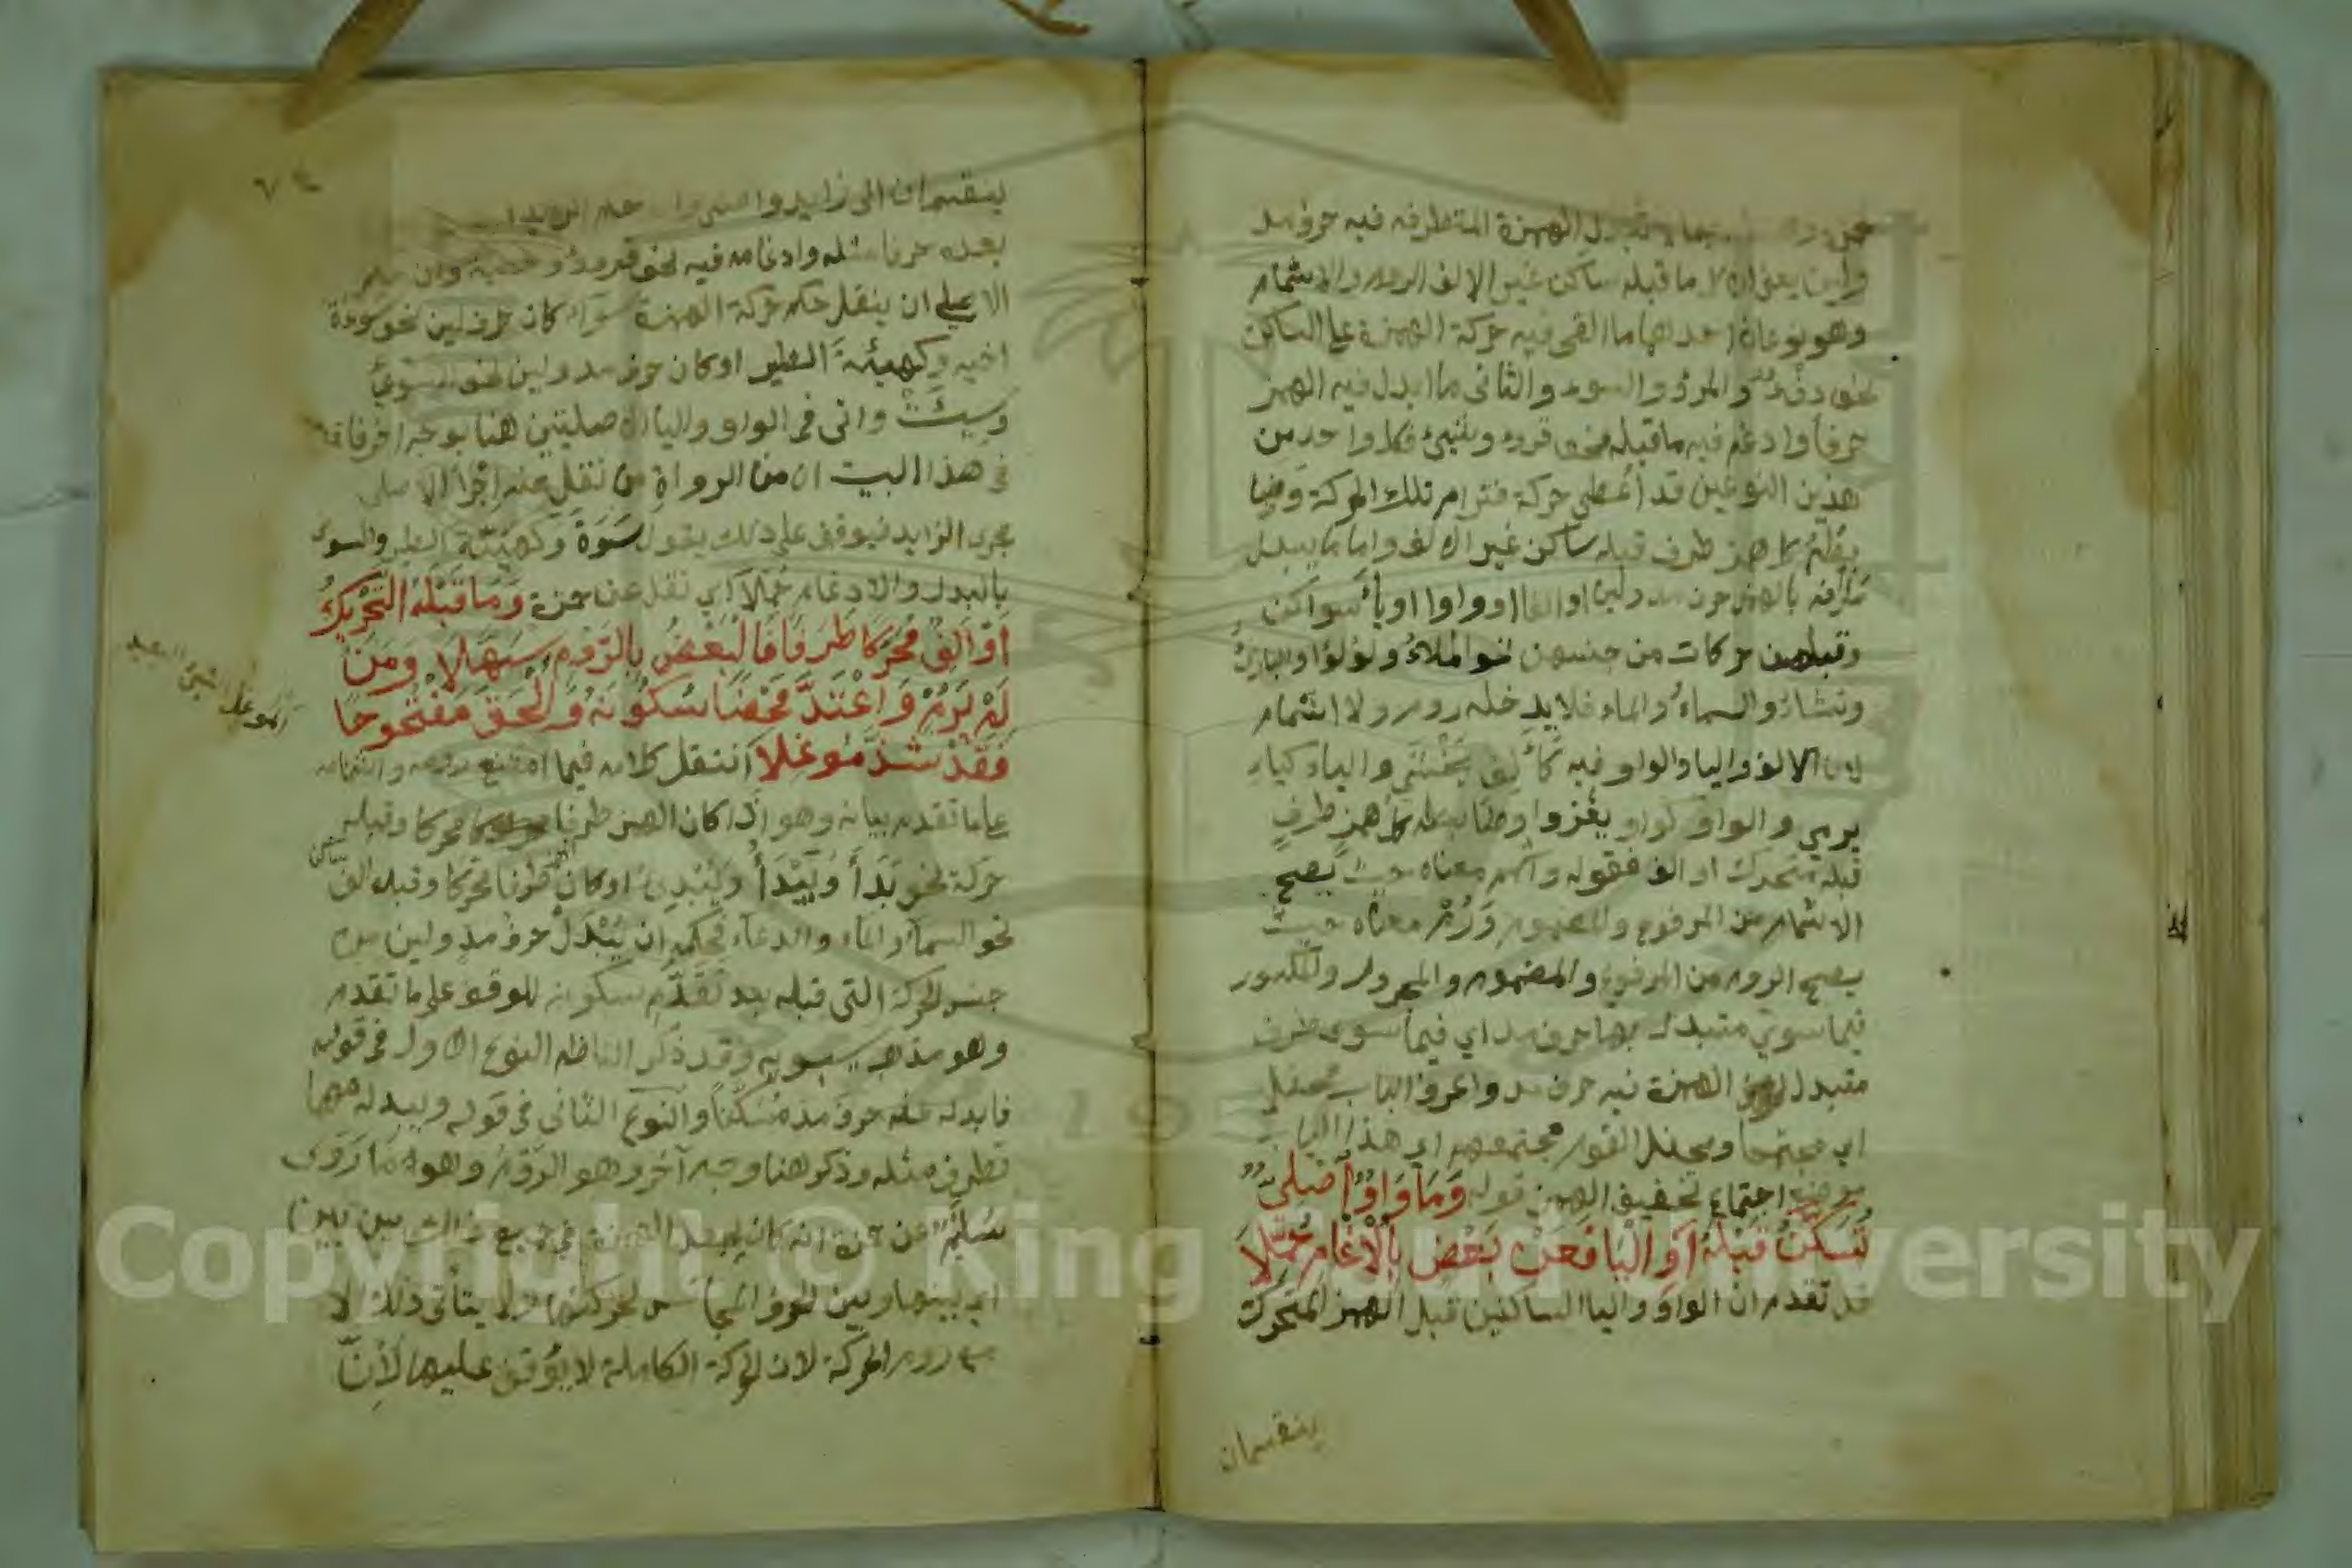 تبدل الهمزة المتطرفه فيه حرف مد
ولين يعني ان كل ما قبله ساكن غير الالف الروم والاشمام
وهو نوعان احداهما ما القي فيه حركة الهمزة على الساكن
نحو دفء والمرؤ والسوء والثاني ما ابدل فيه الهمز
حرفا وادغم فيه ما قبله نحو قروء وبنيئ فكل واحد من
هذين النوعين قد أعطي حركة فترام تلك الحركة
كل همز طرف قبله ساكن غير الالف واما ما يبدل
طرفه بالهمز حرف مد ولين او الفا او واوا او ياء سواكن
وقبلهن حركات من جنسهن نحو الملاء ولؤلؤا والبارئ
ونشاء والسماء والماء فلا يدخله روم ولا اشمام
لان الالف واليا والواو فيه كألف يخشى والياء كياء
يرمي والواو كواو يغزوا وضابطه كل همز طرف
قبله متحرك او الف فقوله واشمم معناه حيث يصح
الاشمام من المرفوع والمضموم وَرُمْ معناه حيث
يصح الروم من المرفوع والمضموم والمجرور والمكسور
فيما سوي متبدل بها حرف مد اي فيما سوى طرف
متبدل الهمزة فيه حرف مد واعرف الباب محفلا
اي مجتمعا ومحفل القوم مجتمعهم اي هذا الباب
موضع اجتماع تخفيف الهمز قوله وَمَا وَاوٌ أَصْلِيٌّ
تَسَكَّنَ قَبْلَهُ أَوِ الْيَا فَعَنْ بَعْضٍ بِالْادْغَامِ حُمِّلَا
قد تقدم ان الواو واليا الساكنين قبل الهمز المتحرك
ينقسمان
ينقسمان الى زايد واصلي
بعده حرفا مثله وادغامه فيه نحو قروء و خطية وان
الاصلي ان ينقل حكم حركة الهمزة سواء كان حرف لين نحو سوءة
اخيه وكهيئة الطير او كان حرف مد ولين نحو السوئ
وسيئت واتى في الواو واليا الاصليتين هنا بوجه اخر
في هذا البيت ان من الرواة من نقل عنه إجرا الاصلي
مجرى الزايد فيوقف على ذلك يقول سَوّة وكهيّة الطير والسوء
بالبدل والادغام حملا اي نقل عن حمزة وَمَا قَبْلَهُ التَّحْرِيكُ
أَوْ أَلِفٌ مُحَرَّكًا طَرَفًا فَالْبَعْضُ بِالرَّوْمِ سَهَّلَا وَمَنْ
لَمْ يَرُمْ وَاعْتَدَّ مَحْضًا سُكُونَهُ وَأَلْحَقَ مَفْتُوحًا
فَقَدْ شَذَّ مُوغِلَا انتقل كلامه فيما امتنع رومه واشمامه
على ما تقدم بيانه وهو اذا كان الهمز طرفا محركا وقبله
حركة نحو بَدَأَ وَيَبْدَأُ وَيُبْدِئُ او كان طرفا محركا وقبله الف
نحو السماء والماء والدعاء فحكمه ان يُبْدَلْ حرف مد ولين من
جنس الحركة التي قبله بعد تقدم سكونه للوقف على ما تقدم
وهو مذهب سيبويه وقد ذكر الناظم النوع الاول في قوله
فابدله عنه حرف مد مُسَكَّنًا والنوع الثاني في قوله ويبدله مهما
تطرف مثله وذكر هنا وجه آخر وهو الرَّوْمُ وهو ما رَوَى
سُلَيْم عن حمزة انه كان يجعل الهمزة في جميع ذلك بين بين
اي بينها وبين الحرف المجانس لحركتها ولا يتأتى ذلك الا
مع روم الحركة لان الحركة الكاملة لا يُوقف عليها لأنّ